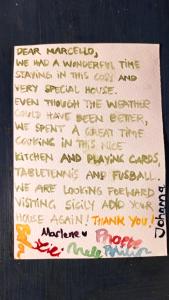 DEAR MARCELLO,
WE HAD A WONDERFUL TIME
STAYING IN THIS COSY AND
VERY SPECIAL HOUSE.
EVEN THOUGH THE WEATHER
COULD HAVE BEEN BETTER,
WE SPENT A GREAT TIME
COOKING IN THIS NICE
KITCHEN AND PLAYING CARDS,
TABLETENNIS AND FUSBALL.
WE ARE LOOKING FORWARD
VISITING SICILY AND YOUR
HOUSE AGAIN! THANK YOU!
Marlene Phoebe
Johanna